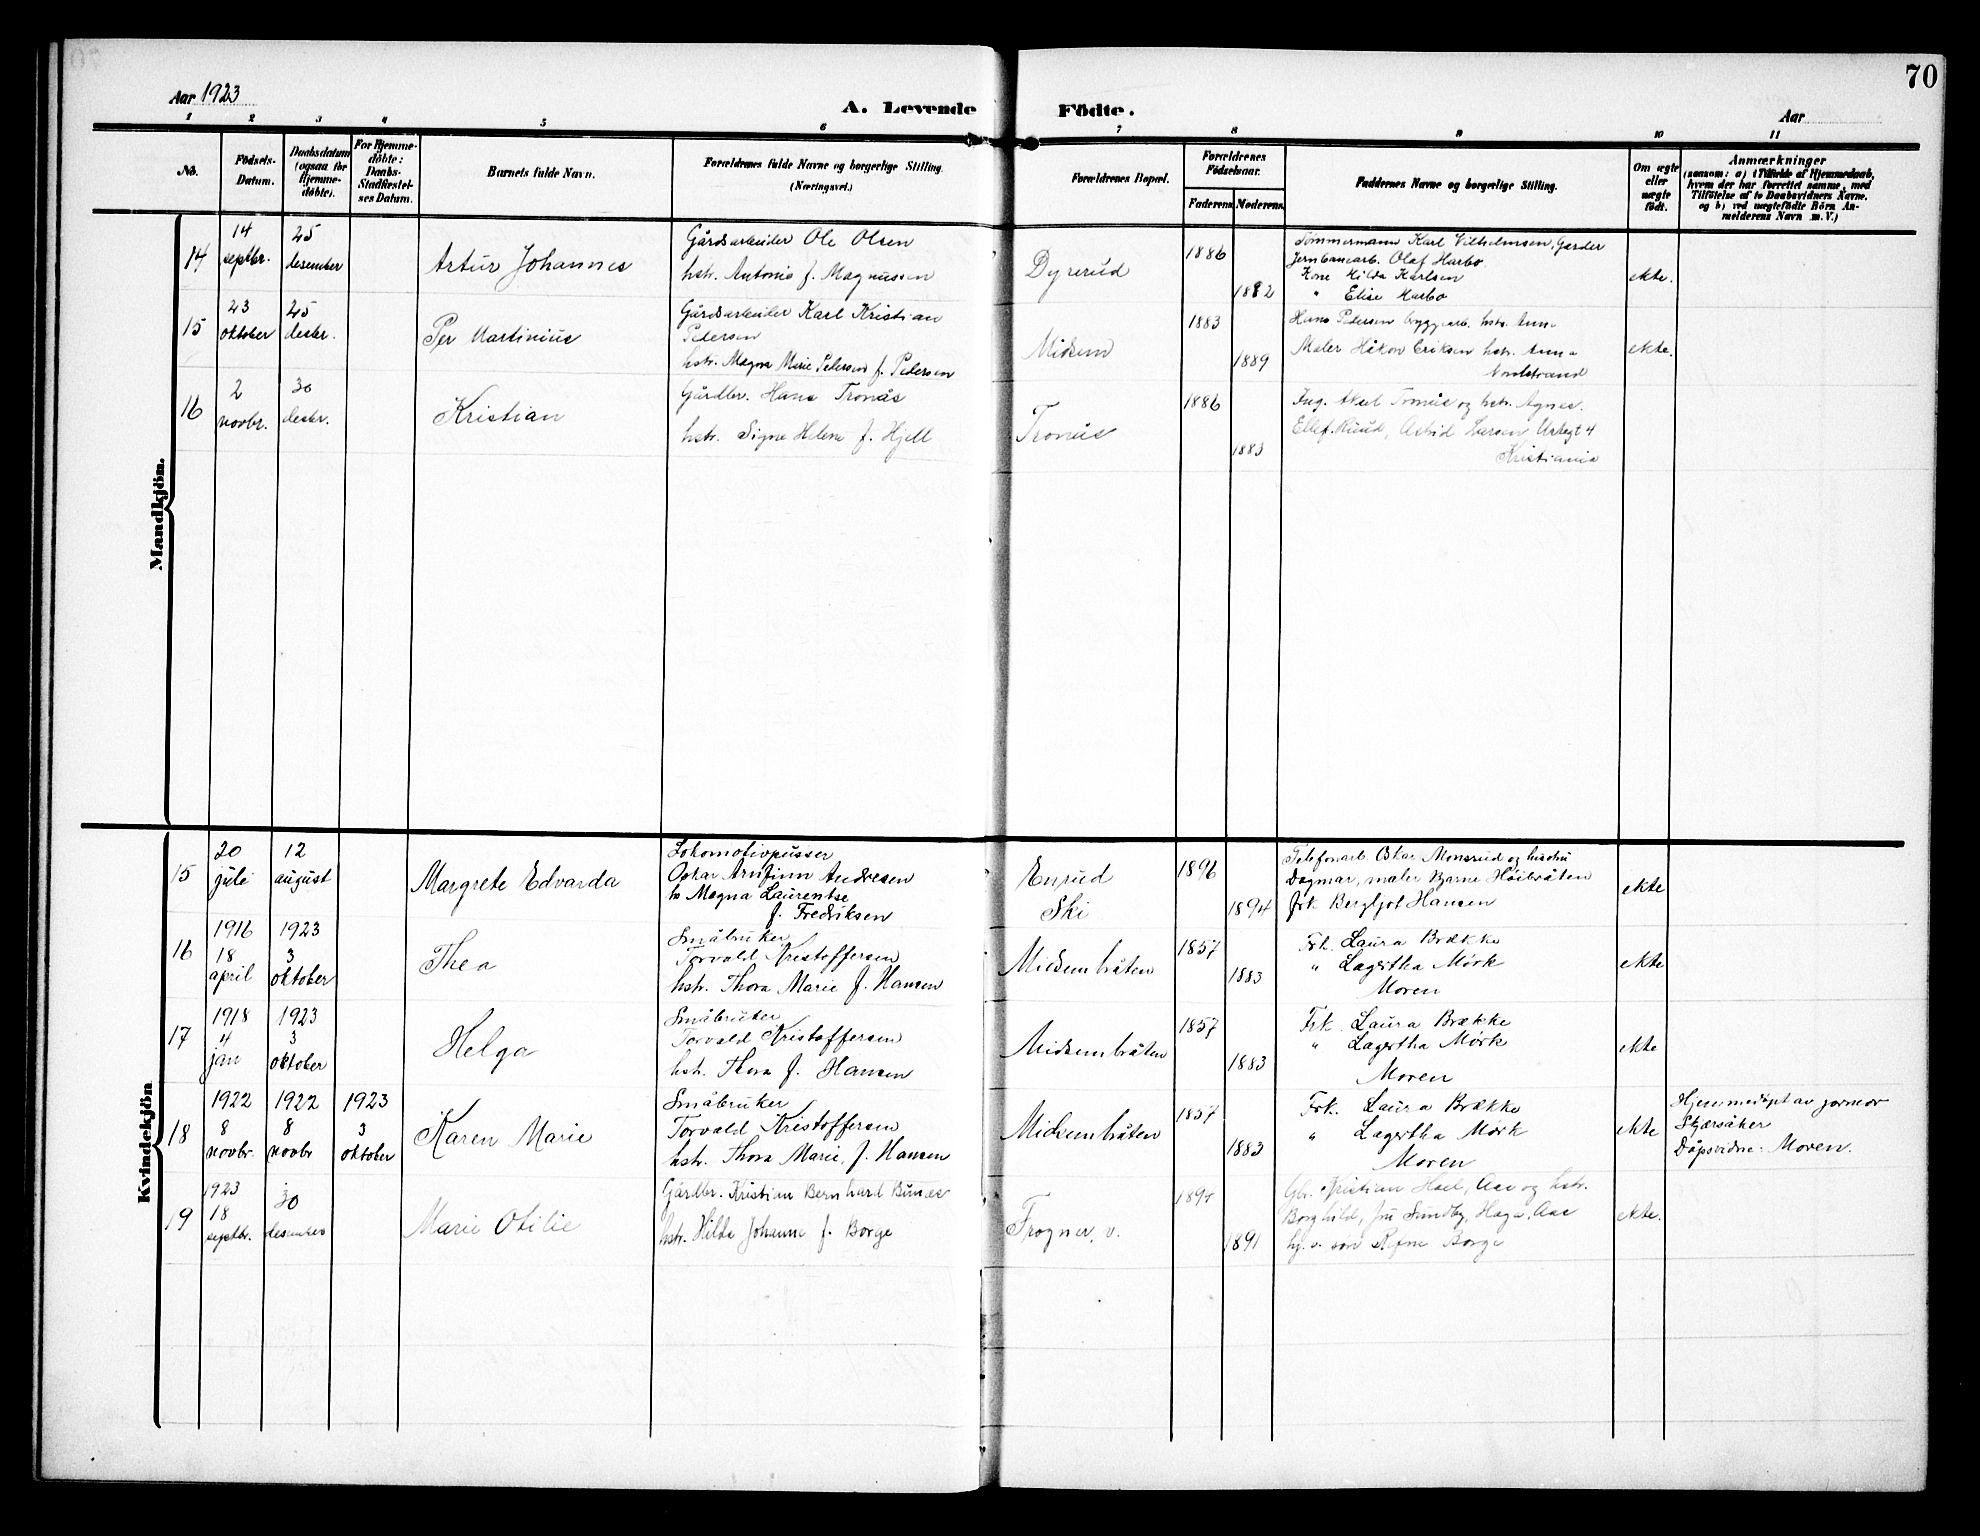 70
Aar 1923
A. Levende Födte.
Aar
1 2 3 4 5 6 7 8 9 10 11
No.
Födsels-Datum.
Daabsdatum (ogsaa for Hjemme-døbte).
For Hjemme-döbte: Daabs-Stadfæstel-ses Datum.
Barnets fulde Navn.
Forældrenes fulde Navne og borgerlige Stilling. (Næringsvei.)
Forældrenes Bopæl.
Forældrenes Födselsaar.
Faderens. Moderens.
Faddernes Navne og borgerlige Stilling.
Om ægte eller uægte födt.
Anmærkninger
(saasom: a) i Tilfælde af Hjemmedaab,
hvem der har forrettet samme, med
Tilföielse af to Daabsvidners Navne.
og b) ved uægtefödte Börn An-
melderens Navn m. V.)
Mandkjön.
14
14 septbr.
25 desember
Artur Johannes
Gårdsarbeider Ole Olsen
hstr. Antonie f. Magnussen
Dyrerud
1886
1882
Tömmermann Karl Vilhelmsen, Garder
Jernbanearb. Olaf Harbo
Kone Hilda Karlsen
" Elise Harbo
ekte.
15
23 oktober
25 desbr.
Per Martinius
Gårdsarbeider Karl Kristian
Pedersen
hstr. Magna Marie Pedersen f. Pedersen
Midsem
1883
1889
Hans Pedersen byggearb. hstr. Anna
Maler Håkon Eriksen hstr. Anna
Nordstrand
ekte.
16
2 novbr.
30 desbr.
Kristian
Gårdbr. Hans Tronås
hstr. Signe Helene f. Hjell
Tronås
1886
1883
Ing. Aksel Tronås og hstr. Agnes.
Ellef Ruud, Astrid Larsen, Urtegt 4
Kristiania
Kvindekjön
15
20 juli
12 august
Margrete Edvarda
Lokomotivpusser
Oskar Arnfinn Andresen
h Magna Laurentse
f. Fredriksen
Enrud
Ski
1896
1894
Telefonarb. Oskar Monsrud og hustru
Dagmar, maler Bjarne Höibråten
frk Bergljot Hansen
ekte
16
1916 18 april
1923 3 oktober
Thea
Småbruker
Torvald Kristoffersen
hstr. Thora Marie f. Hansen
Midsembråten
1857
1883
Frk. Laura Brække
" Lagertha Mørk
Moren
ekte
17
1918 4 jan
1923 3 oktober
Helga
Småbruker
Torvald Kristoffersen
hstr. Thora f. Hansen
Midsembråten
1857
1883
Frk. Laura Brække
" Lagertha Mørk
Moren
ekte
18
1922 8 novbr.
1922 8 novbr
1923 3 oktober
Karen Marie
Småbruker
Torvald Kristoffersen
hstr. Thora Marie, f. Hansen
Midsembråten
1857
1883
Frk. Laura Brække
" Lagertha Mørk
Moren
ekte
Hjemmedöpt av jormor
Skjærsåker
Dåpsvidne: Moren.
19
1923 18 septbr.
30 desember
Marie Otilie
Gårdbr. Kristian Bernhard Bunæs
hstr. Hilda Johanne f. Borge
Frogner, v.
1891
Gbr. Kristian Hael, Aas og hstr.
Borghild, fru Sundby, Haga, Aas
Borge
ekte.